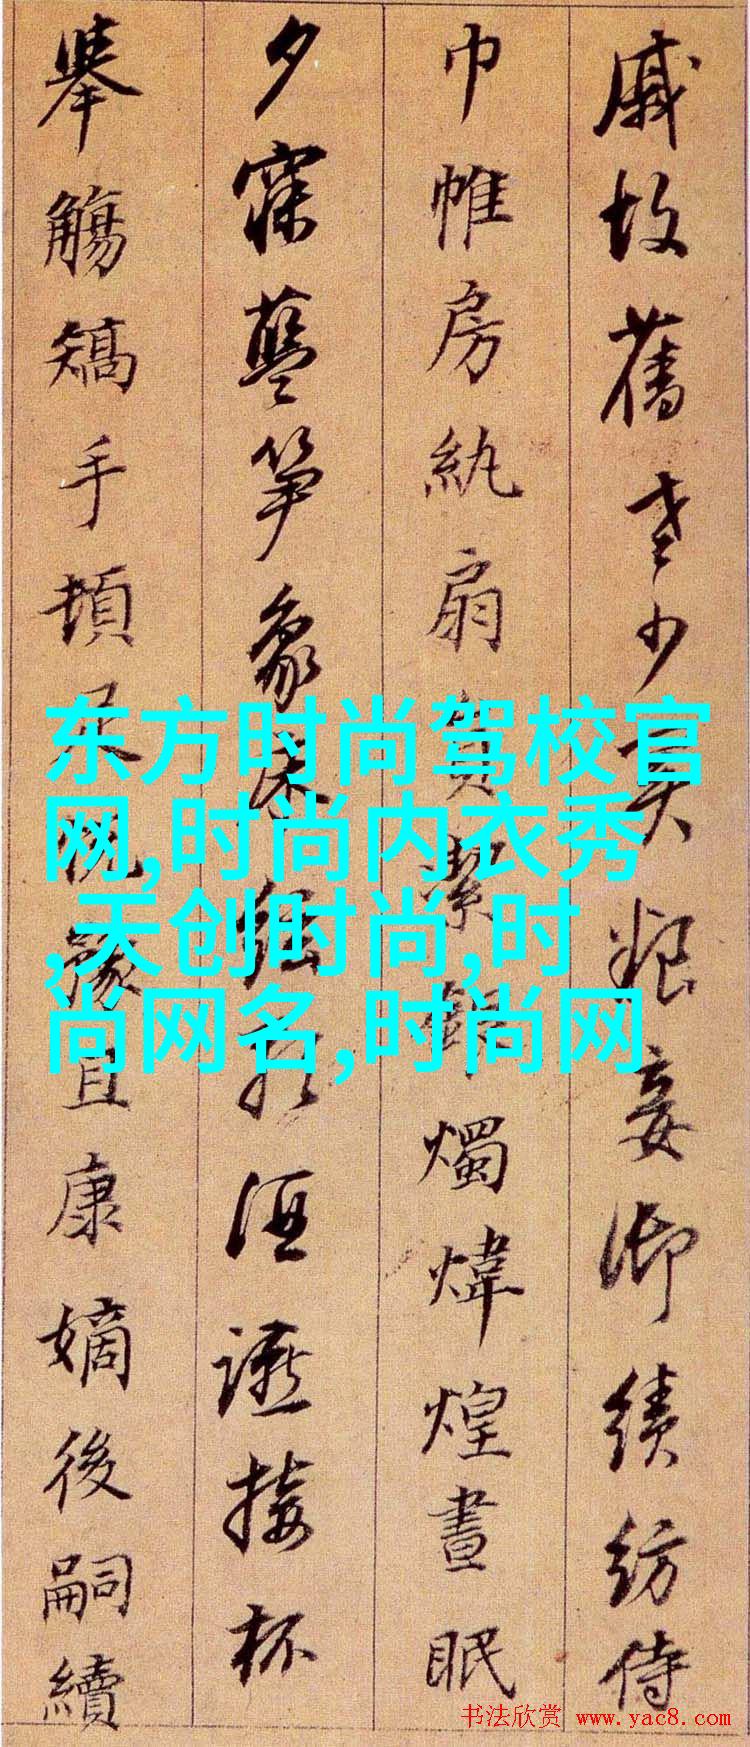 戚故舊老少異粮妾御績紡侍
巾帷房紈扇員絜銀燭煒煌晝眠
夕寐藍笋象床絃歌酒讌接杯
舉觴矯手頓足悅豫且康嫡後嗣續
东方时尚驾校官
网,时尚内衣秀
,天创时尚,时
尚网名,时尚网
书法欣赏 www.yac8.com